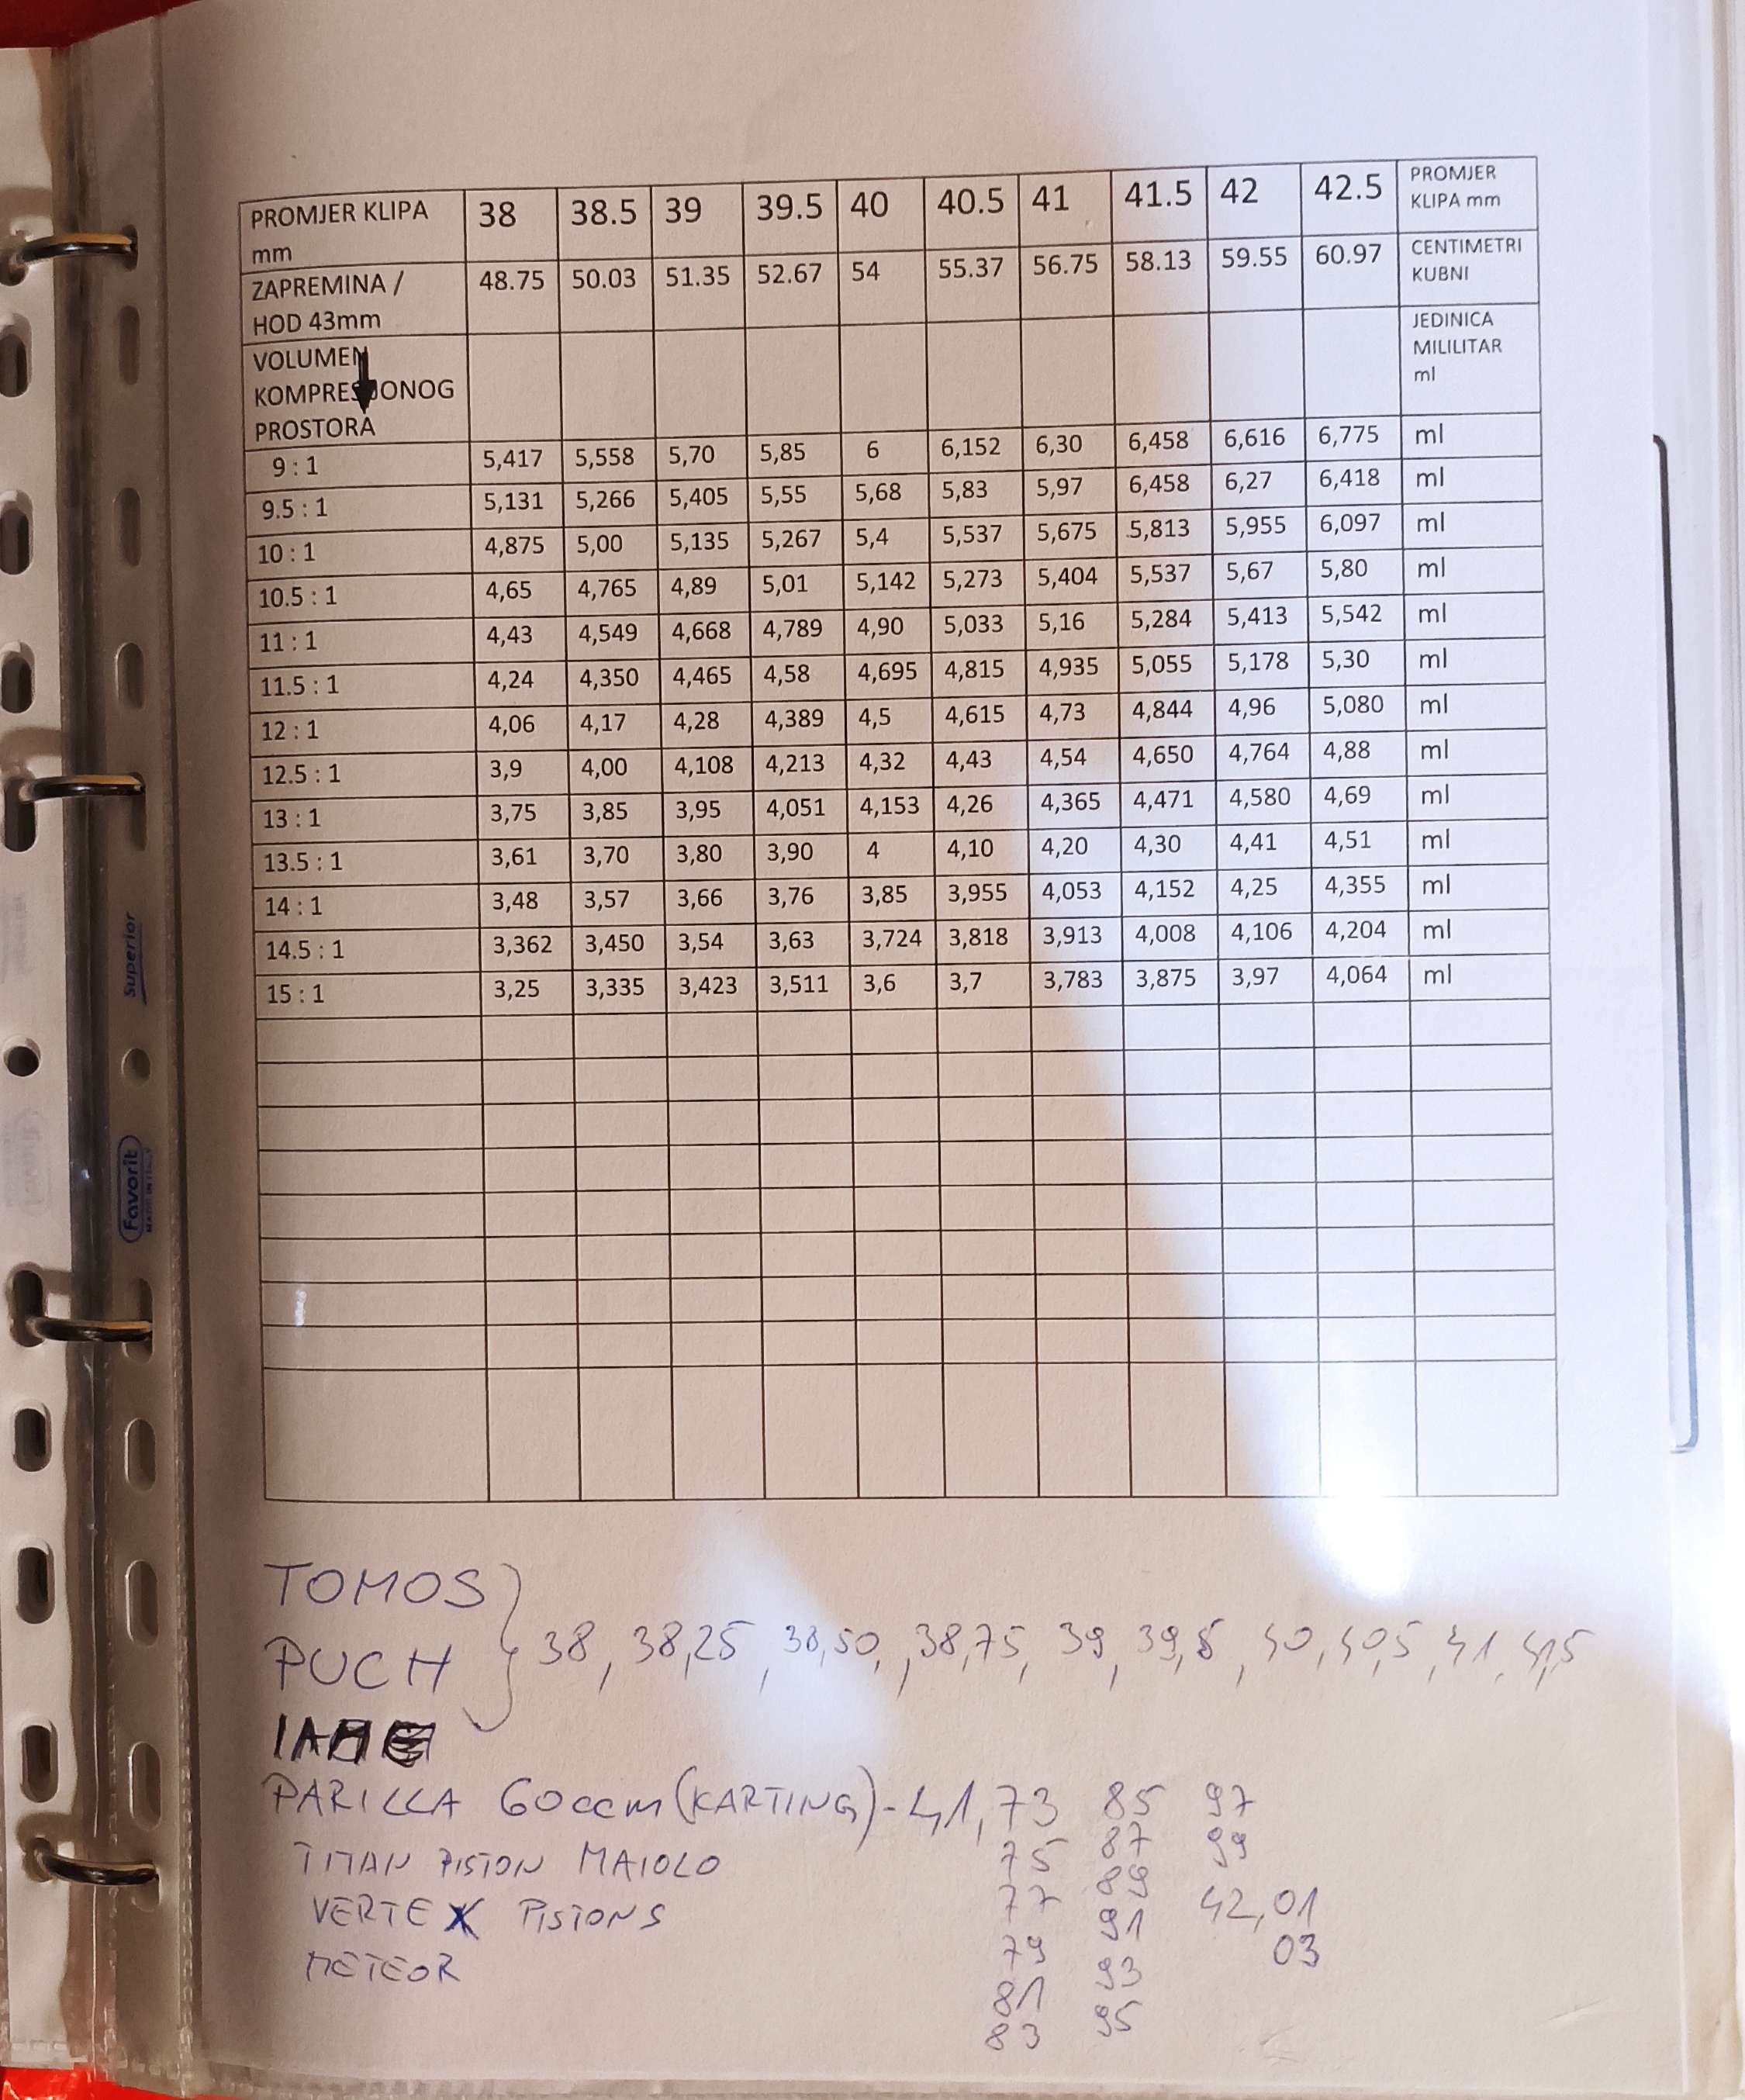 PROMJER KLIPA mm 38 38.5 39 39.5 40 40.5 41 41.5 42 42.5 PROMJER KLIPA mm
ZAPREMINA / HOD 43mm 48.75 50.03 51.35 52.67 54 55.37 56.75 58.13 59.55 60.97 CENTIMETRI KUBNI
VOLUMEN KOMPRESIONOG PROSTORA JEDINICA MILILITAR ml
9 : 1 5,417 5,558 5,70 5,85 6 6,152 6,30 6,458 6,616 6,775 ml
9.5 : 1 5,131 5,266 5,405 5,55 5,68 5,83 5,97 6,458 6,27 6,418 ml
10 : 1 4,875 5,00 5,135 5,267 5,4 5,537 5,675 5,813 5,955 6,097 ml
10.5 : 1 4,65 4,765 4,89 5,01 5,142 5,273 5,404 5,537 5,67 5,80 ml
11 : 1 4,43 4,549 4,668 4,789 4,90 5,033 5,16 5,284 5,413 5,542 ml
11.5 : 1 4,24 4,350 4,465 4,58 4,695 4,815 4,935 5,055 5,178 5,30 ml
12 : 1 4,06 4,17 4,28 4,389 4,5 4,615 4,73 4,844 4,96 5,080 ml
12.5 : 1 3,9 4,00 4,108 4,213 4,32 4,43 4,54 4,650 4,764 4,88 ml
13 : 1 3,75 3,85 3,95 4,051 4,153 4,26 4,365 4,471 4,580 4,69 ml
13.5 : 1 3,61 3,70 3,80 3,90 4 4,10 4,20 4,30 4,41 4,51 ml
14 : 1 3,48 3,57 3,66 3,76 3,85 3,955 4,053 4,152 4,25 4,355 ml
14.5 : 1 3,362 3,450 3,54 3,63 3,724 3,818 3,913 4,008 4,106 4,204 ml
15 : 1 3,25 3,335 3,423 3,511 3,6 3,7 3,783 3,875 3,97 4,064 ml
Superior
Favorit
TOMOS
PUCH 38, 38,25, 38,50, 38,75, 39, 39,5, 40, 40,5, 41, 41,5
IAME
PARILLA 60 ccm (KARTING) - 41,73 85 97
TITAN PISTON MAIOLO 75 87 99
VERTEX PISTONS 77 89 42,01
METEOR 79 91 03
81 93
83 95